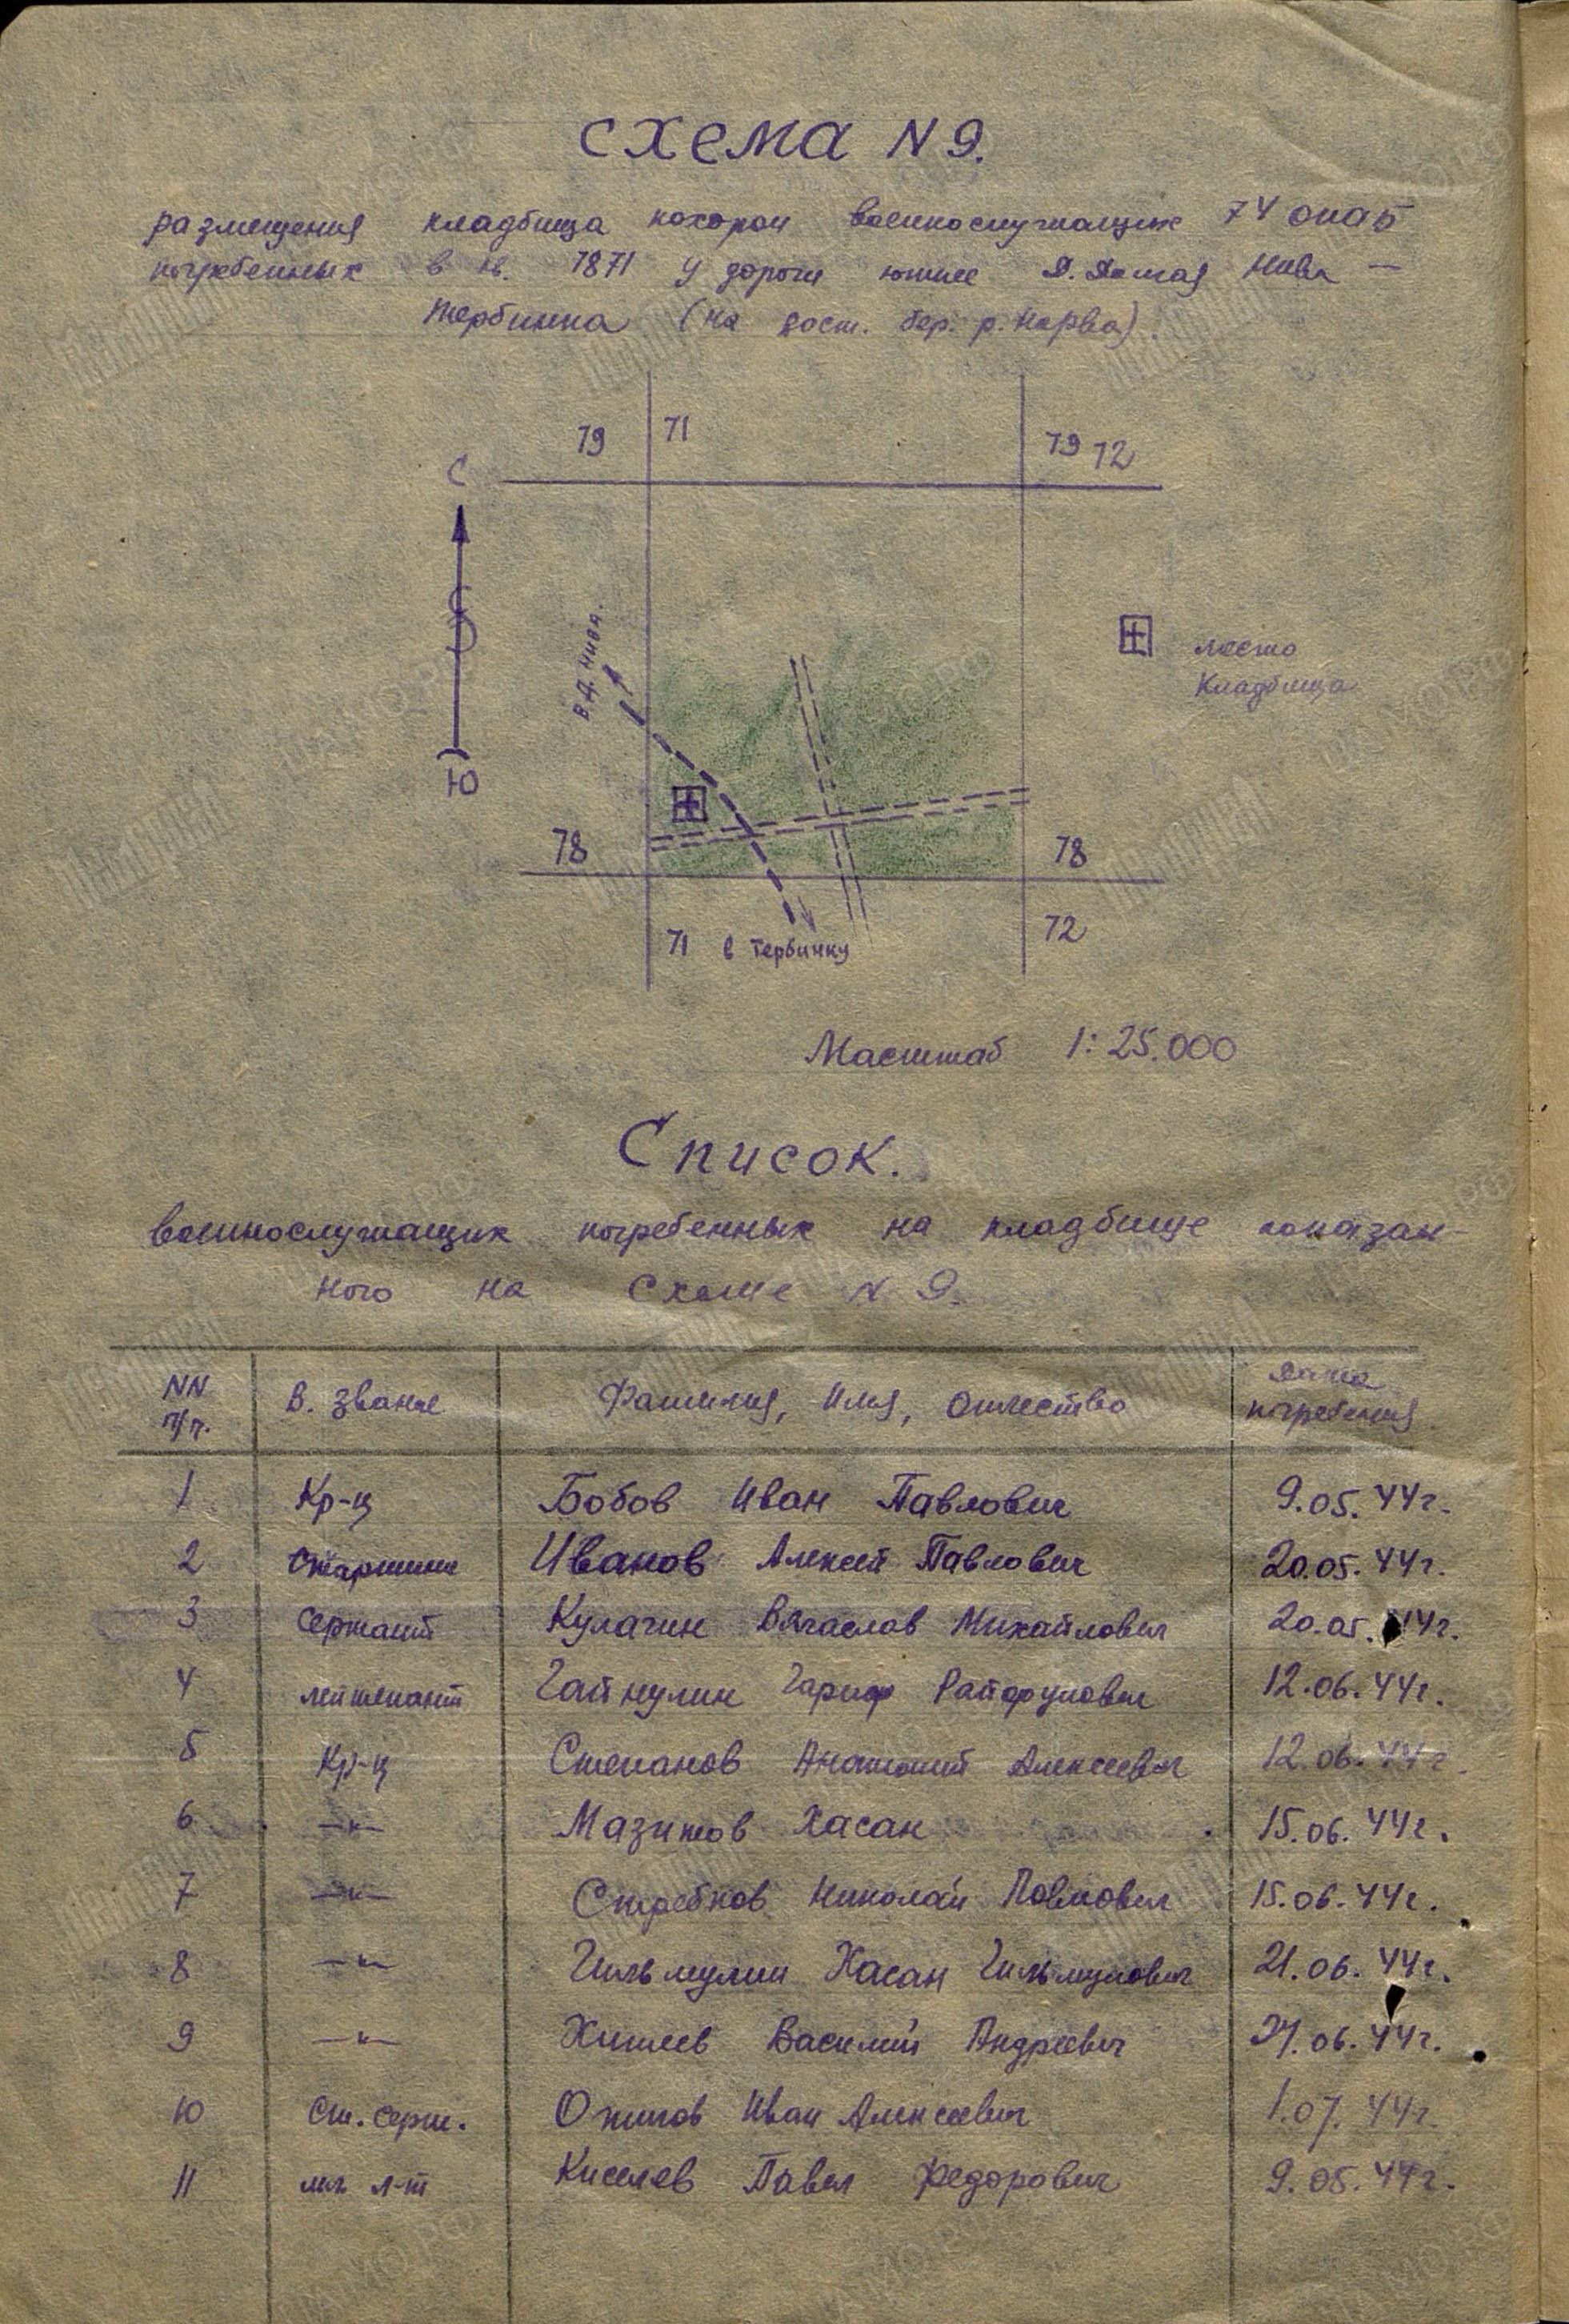 Схема N 9.
размещения кладбища похорон военнослужащих 74 опаб
погребенных в кв. 7871 у дороги южнее д. Долгая Нива —
Тербинка (на вост. бер. р. Нарва).
79 71 79 72
С
В Д. Нива.
место
кладбища
Ю
78 78
71 в Тербинку 72
Масштаб 1:25.000
Список.
военнослужащих погребенных на кладбище показан-
ного на схеме N 9.
NN п/п. В. звание Фамилия, Имя, Отчество Дата погребения
1 Кр-ц Бобов Иван Павлович 9.05.44г.
2 Старшина Иванов Алексей Павлович 20.05.44г.
3 Сержант Кулагин Вячаслав Михайлович 20.05.44г.
4 лейтенант Гайнулин Гариф 12.06.44г.
5 Кр-ц Степанов Анатолий Алексеевич 12.06.44г.
6 —"— Мазитов Хасан 15.06.44г.
7 —"— Скребков Николай Павлович 15.06.44г.
8 —"— Гильмулин Хасан Гильмулович 21.06.44г.
9 —"— Василий Андреевич .06.44г.
10 Ст. серж. Иван Алексеевич 1.07.44г.
11 мл. л-т Киселев Павел Федорович 9.05.44г.